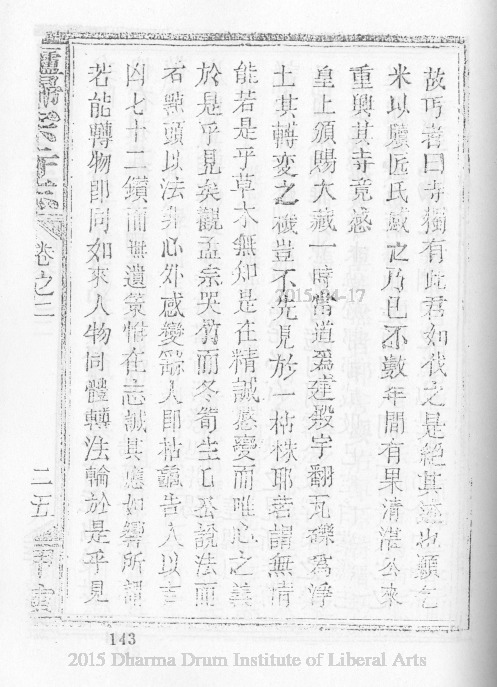 故丐者曰寺獨有此君如伐之是絕其迹也願乞
米以贖匠氏感之乃已不數年間有果清湛公來
重興其寺竟感
皇上頒賜大藏一時當道為建殿宇翻瓦礫為淨
土其轉變之機豈不先見於一枯株耶若謂無情
能若是乎草木無知是在精誠感變而唯心之義
於是乎見矣觀孟宗哭竹而冬筍生生公說法而
石點頭以法非心外感變繇人即枯龜告人以吉
凶七十二鑽而無遺策惟在志誠其應如響所謂
若能轉物即同如來人物同體轉法輪於是乎見
卷之二
二五
143
2015-04-17
2015 Dharma Drum Institute of Liberal Arts